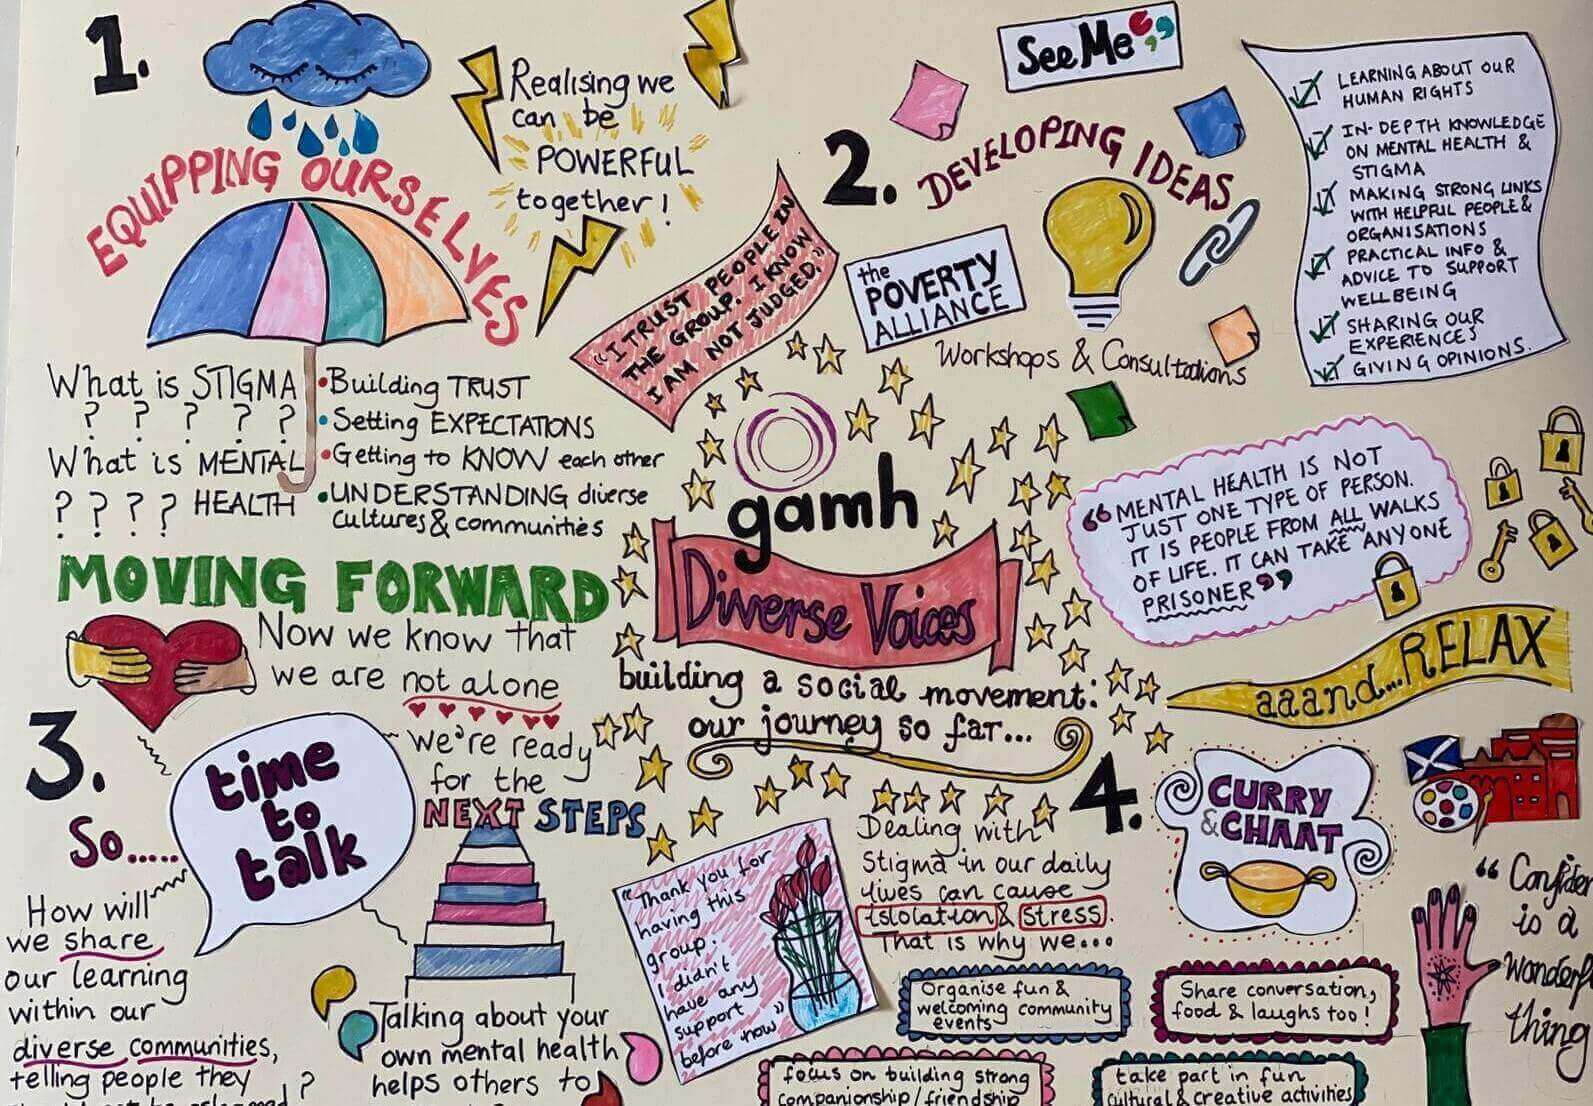 1.
EQUIPPING OURSELVES
Realising we
can be
POWERFUL
together!
What is STIGMA
? ? ? ? ?
What is MENTAL
? ? ? ? HEALTH
•Building TRUST
•Setting EXPECTATIONS
•Getting to KNOW each other
•UNDERSTANDING diverse
cultures & communities
"I TRUST PEOPLE IN
THE GROUP. I KNOW
I AM NOT JUDGED."
2.
DEVELOPING IDEAS
See Me
the
POVERTY
ALLIANCE
Workshops & Consultations
LEARNING ABOUT OUR
HUMAN RIGHTS
IN-DEPTH KNOWLEDGE
ON MENTAL HEALTH &
STIGMA
MAKING STRONG LINKS
WITH HELPFUL PEOPLE &
ORGANISATIONS
PRACTICAL INFO &
ADVICE TO SUPPORT
WELLBEING
SHARING OUR
EXPERIENCES
GIVING OPINIONS.
"MENTAL HEALTH IS NOT
JUST ONE TYPE OF PERSON.
IT IS PEOPLE FROM ALL WALKS
OF LIFE. IT CAN TAKE ANYONE
PRISONER"
gamh
Diverse Voices
building a social movement:
our journey so far...
MOVING FORWARD
Now we know that
we are not alone
we're ready
for the
NEXT STEPS
3.
So.....
time
to
talk
How will
we share
our learning
within our
diverse communities,
telling people they
?
Talking about your
own mental health
helps others to
"Thank you for
having this
group.
I didn't
have any
support
before now"
aaand...RELAX
4.
CURRY
& CHAAT
Dealing with
Stigma in our daily
lives can cause
islolation & stress.
That is why we...
Organise fun &
welcoming community
events
Share conversation,
food & laughs too!
focus on building strong
companionship/friendship
take part in fun
cultural & creative activities
"
is a
thing